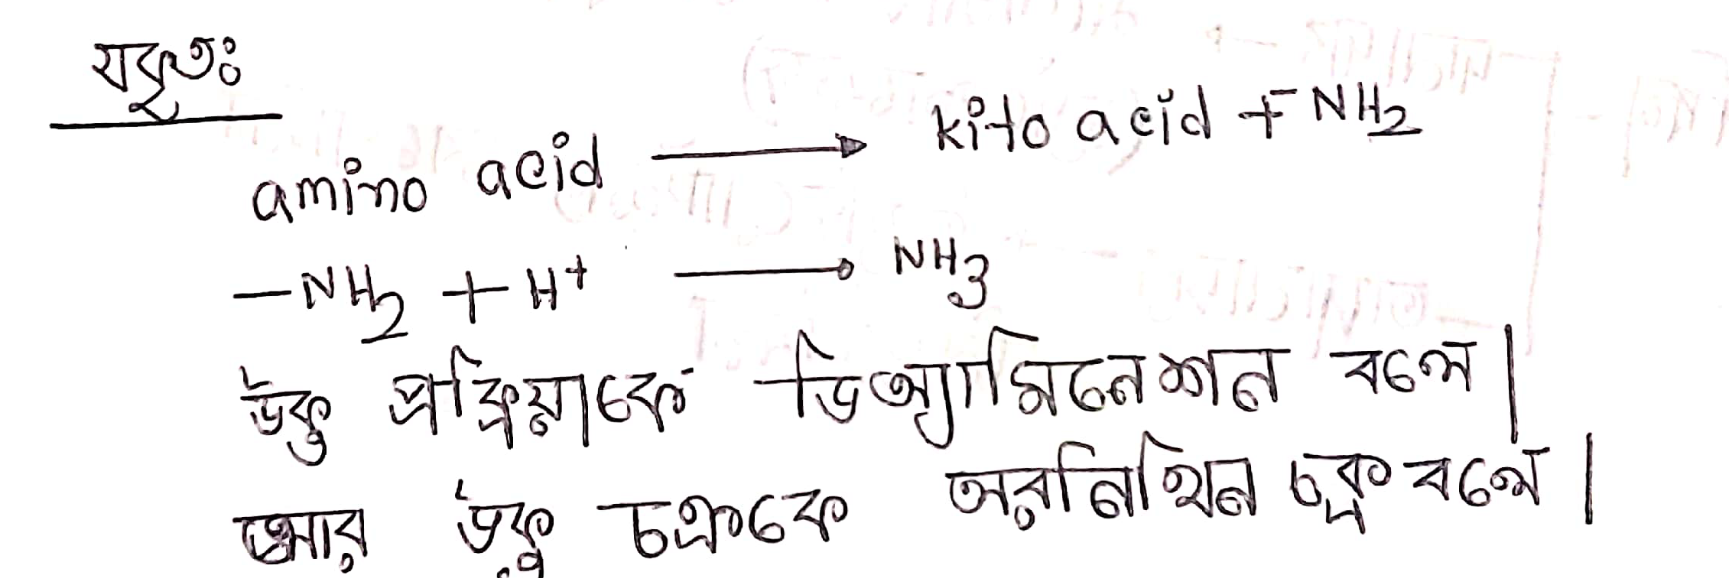 যকৃতঃ
amino acid → kito acid + -NH₂
-NH₂ + H⁺ → NH₃
উক্ত প্রক্রিয়াকে ডিঅ্যামিনেশন বলে।
আর উক্ত চক্রকে অরনিথিন চক্র বলে।